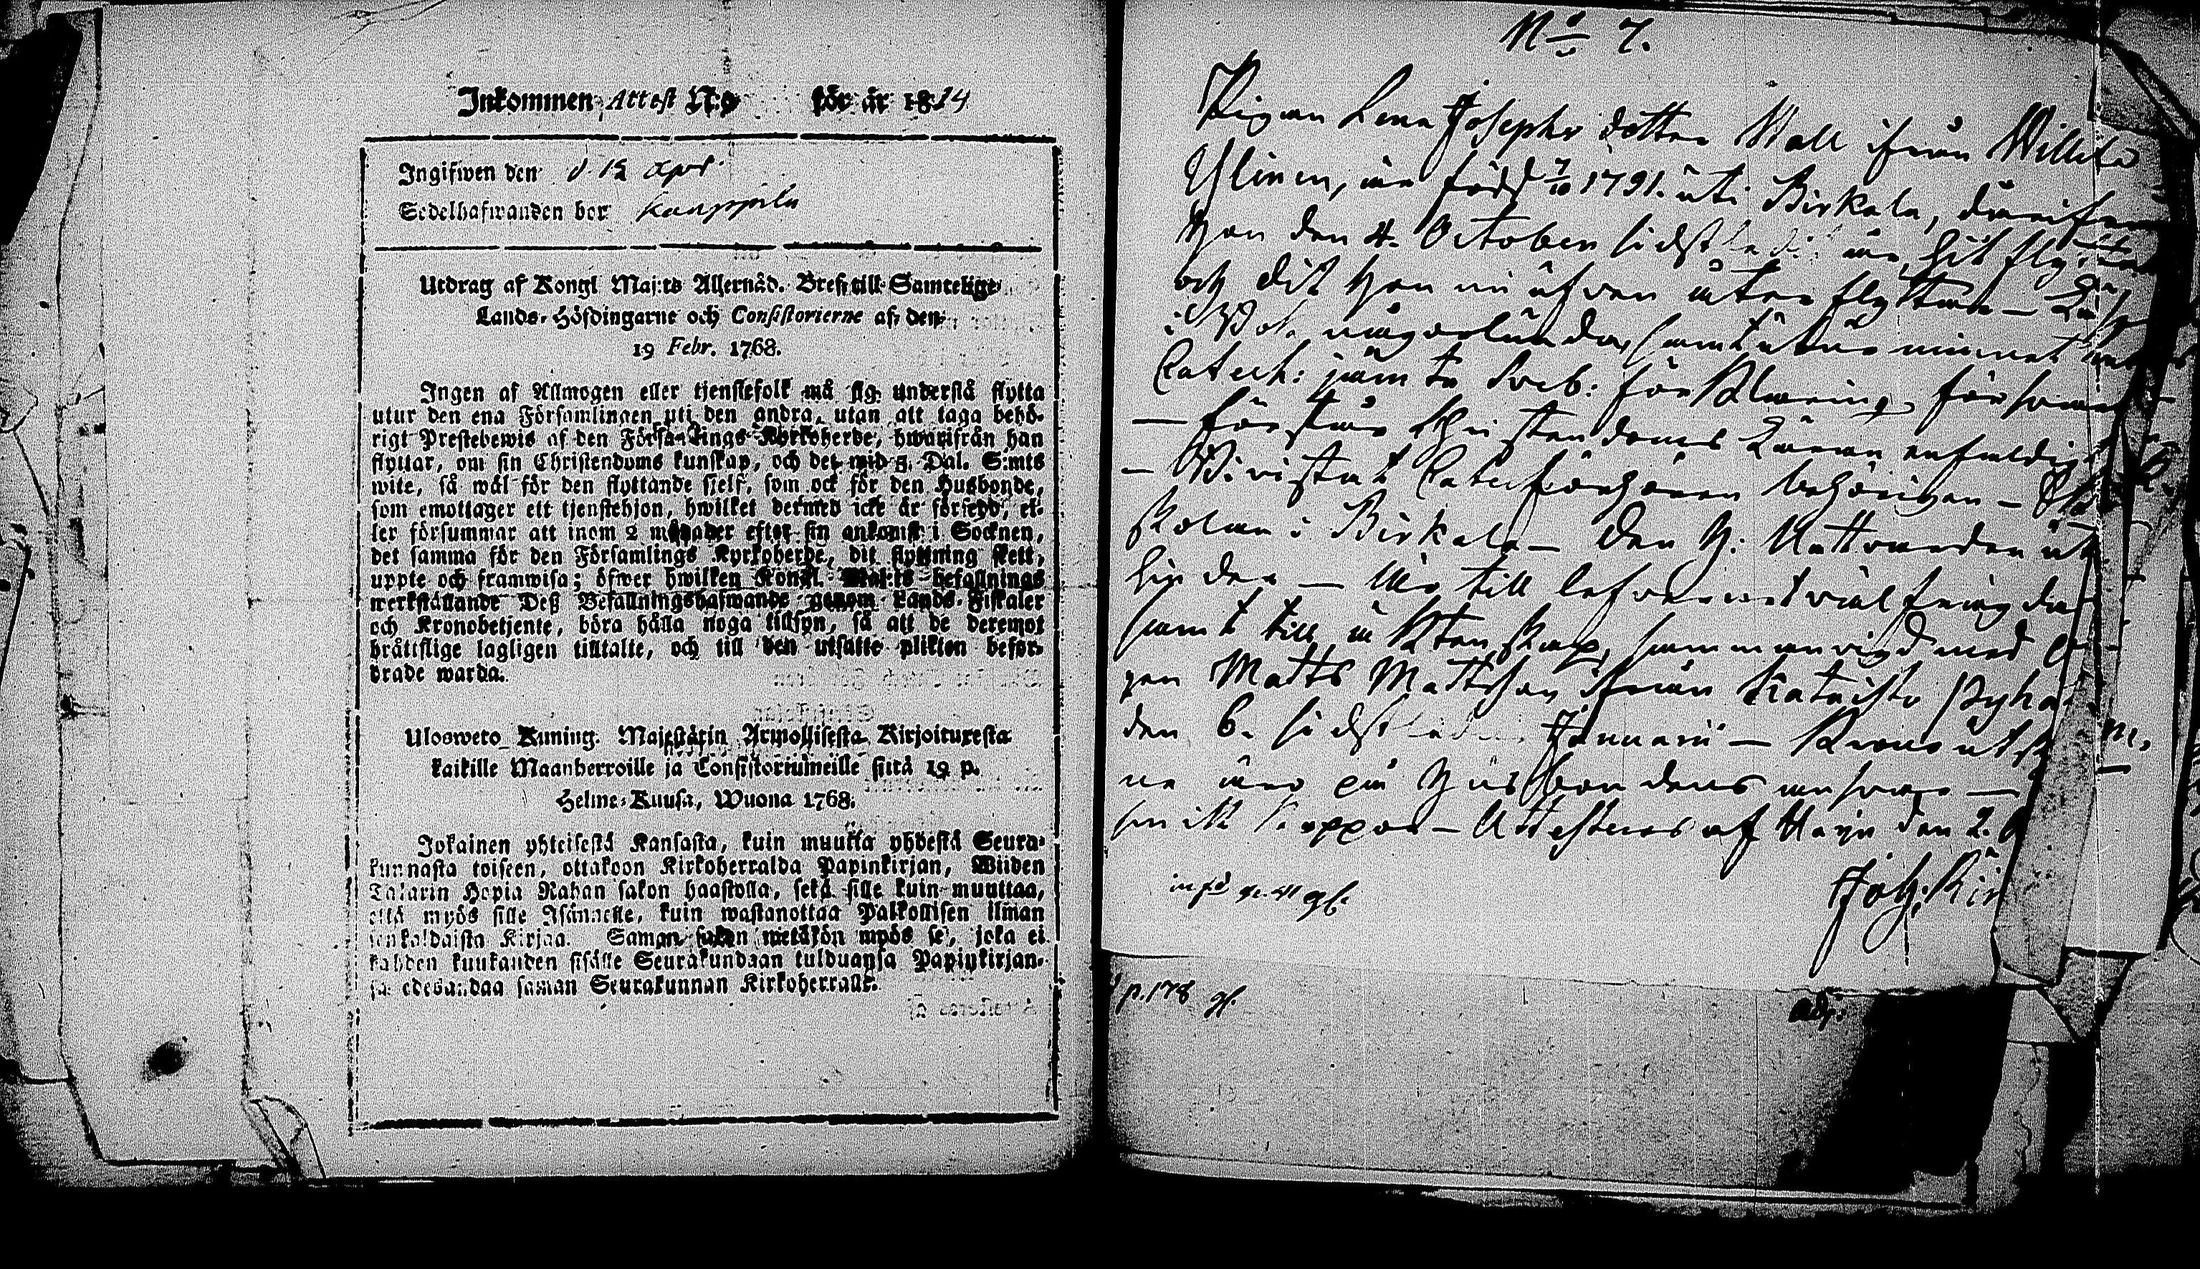 Inkommen Attest N:o för år 1814
Ingifwen den d. 12 Apr.
Sedelhafwanden bor Kauppila
Utdrag af Kongl Maj:ts Allernåd. Bref till Samtelige
Lands-Höfdingarne och Consistorierne af den
19 Febr. 1768.
Ingen af Allmogen eller tjenstefolk må sig understå flytta
utur den ena Församlingen uti den andra, utan att taga behö-
rigt Prestebewis af den Församlings Kyrkoherde, hwarifrån han
flyttar, om sin Christendoms kunskap, och det wid 5. Dal. S:mts
wite, så wäl för den flyttande sjelf, som ock för den Husbonde,
som emottager ett tjenstehjon, hwilket dermed icke är försedd, el-
ler försummar att inom 2 månader efter sin ankomst i Socknen,
det samma för den Församlings Kyrkoherde, dit flyttning skett,
uppte och framwisa; öfwer hwilken Kongl. Maj:ts befallnings
werkställande Deß Befallningshafwande genom Lands-Fiskaler
och Kronobetjente, böra hålla noga tillsyn, så att de deremot
bråttslige lagligen tilltalte, och till den utsatte plikten befor-
drade warda.
Ulosweto Kuning. Majestätin Armollisesta Kirjoituxesta
kaikille Maanherroille ja Consistoriumeille siitä 19 p.
Helme-Kuusa, Wuona 1768.
Jokainen yhteisestä Kansasta, kuin muutta yhdestä Seura-
kunnasta toiseen, ottakoon Kirkoherralda Papinkirjan, Wiiden
Talarin Hopia Rahan sakon haastolla, sekä sille kuin muuttaa,
että myös sille Isännelle, kuin wastanottaa Palkollisen ilman
senkaldaista Kirjaa. Saman sakon wetäkön myös se, joka ei
kahden kuukauden sisälle Seurakundaan tulduansa Papinkirjan-
sa edesandaa saman Seurakunnan Kirkoherralle.
No 7.
Pigan Lena Josephs dotter Wall ifrån Willila
Ylinen, är född 7/10 1791. uti Birkala, därifrån
hon den 4. October sidstledit är hit flyttad
och dit hon nu äfven åter flyttar
i Bok någorlunda, samt utur minnet
Catech: jämte Sveb: förklaring, försvarl
— förstår Christendoms Läran enfaldigt
— Bivistat Catech förhören behörigen —
skolan i Birkala — Den H: Nattvarden
hinder — Är till lefvernet väl frägdad
samt till äktenskap, sammanvigd med
gen Matts Mattsson ifrån Katajisto Pyha
den 6. sidstledne Januarii — Krono utsk
ne äro på Husbondens ansvar —
Attesteras af Harju den 2.
Joh: Kir
p. 178